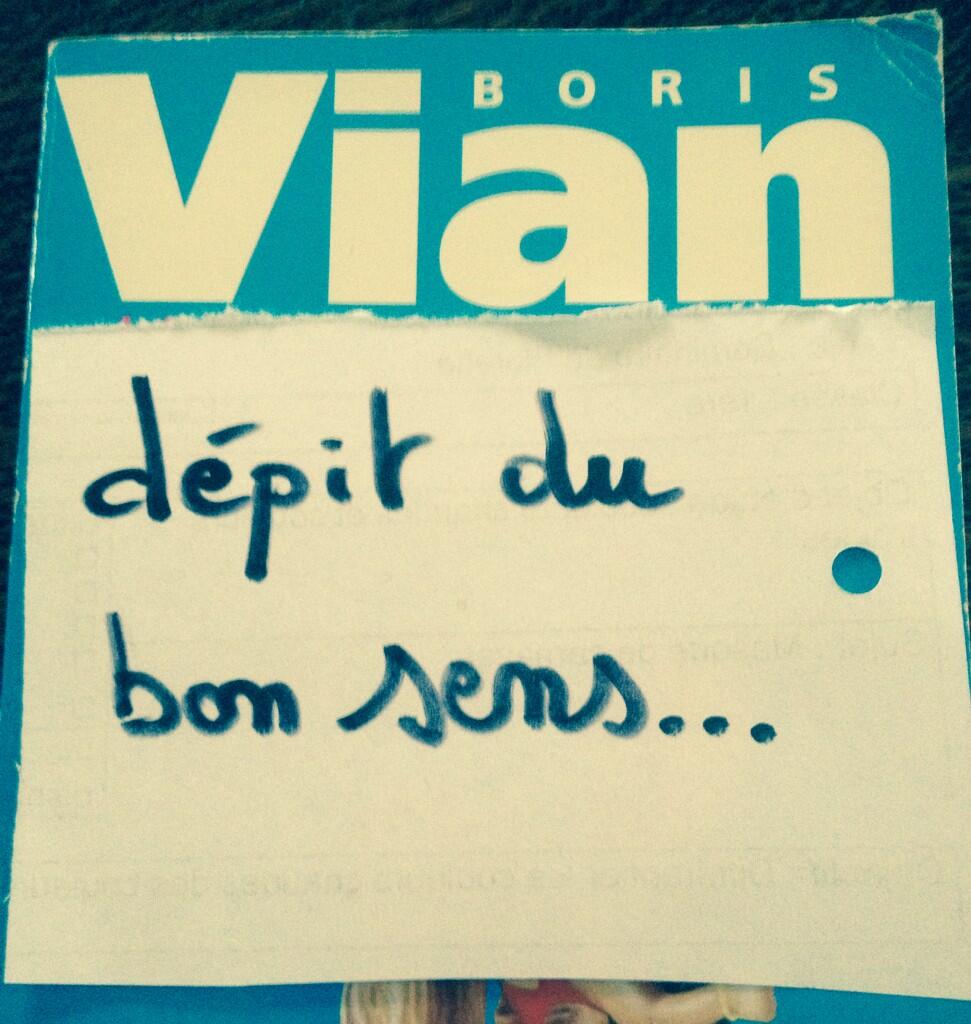 BORIS
Vian
dépit du
bon sens...